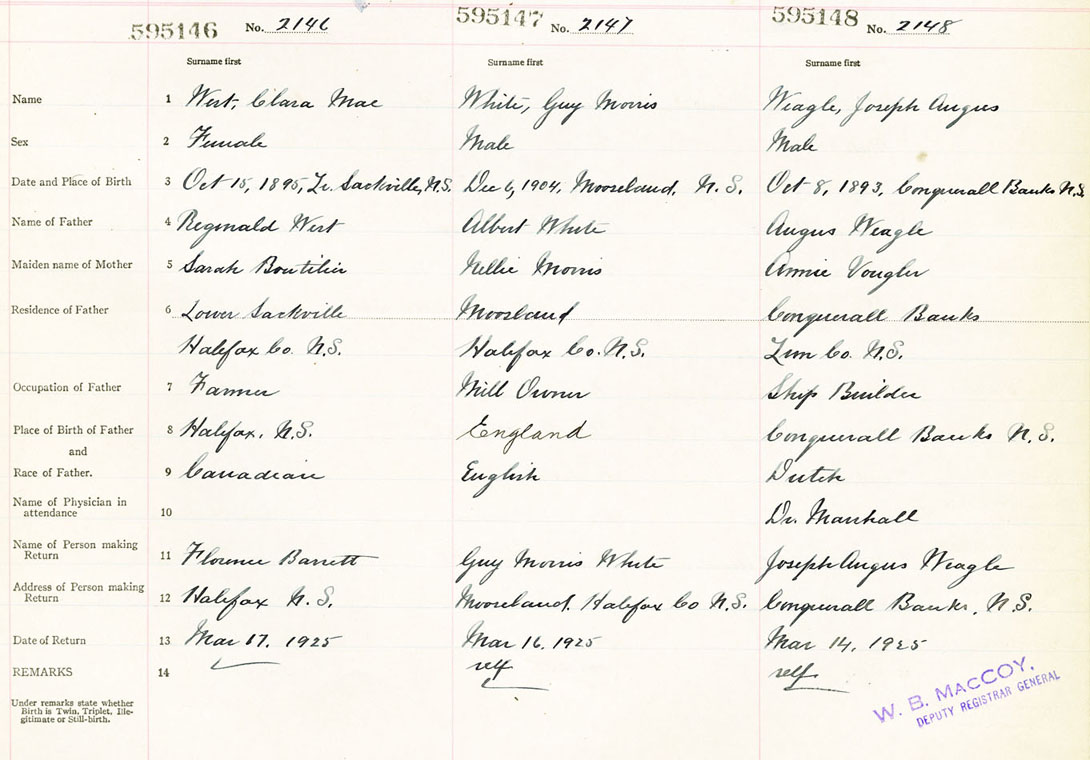 595146 No. 2146 595147 No. 2147 595148 No. 2148
Surname first Surname first Surname first
Name 1 West, Clara Mae White, Guy Morris Weagle, Joseph Angus
Sex 2 Female Male Male
Date and Place of Birth 3 Oct 15, 1895, Lr. Sackville, N.S. Dec 6, 1904, Mooseland, N.S. Oct 8, 1893, Conquerall Banks N.S.
Name of Father 4 Reginald West Albert White Angus Weagle
Maiden name of Mother 5 Sarah Boutilier Nellie Morris Annie Vougler
Residence of Father 6 Lower Sackville Mooseland Conquerall Banks
Halifax Co. N.S. Halifax Co. N.S. Lun Co. N.S.
Occupation of Father 7 Farmer Mill Owner Ship Builder
Place of Birth of Father 8 Halifax, N.S. England Conquerall Banks N.S.
and
Race of Father. 9 Canadian English Dutch
Name of Physician in
attendance 10 Dr. Marshall
Name of Person making
Return 11 Florence Barrett Guy Morris White Joseph Angus Weagle
Address of Person making
Return 12 Halifax N.S. Mooseland, Halifax Co N.S. Conquerall Banks, N.S.
Date of Return 13 Mar 17, 1925 Mar 16, 1925 Mar 14, 1925
REMARKS 14 self self
Under remarks state whether
Birth is Twin, Triplet, Ille-
gitimate or Still-birth.
W. B. MACCOY,
DEPUTY REGISTRAR GENERAL